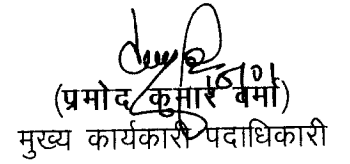 16/01
(प्रमोद कुमार वर्मा)
मुख्य कार्यकारी पदाधिकारी